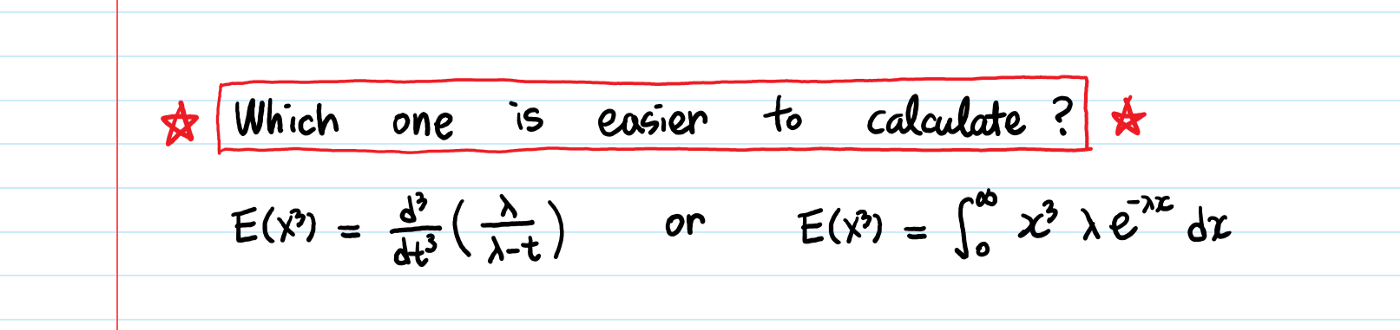 Which one is easier to calculate ?
E(X³) = d³/dt³ ( λ/λ-t ) or E(X³) = ∫₀^∞ x³ λ e^{-λx} dx